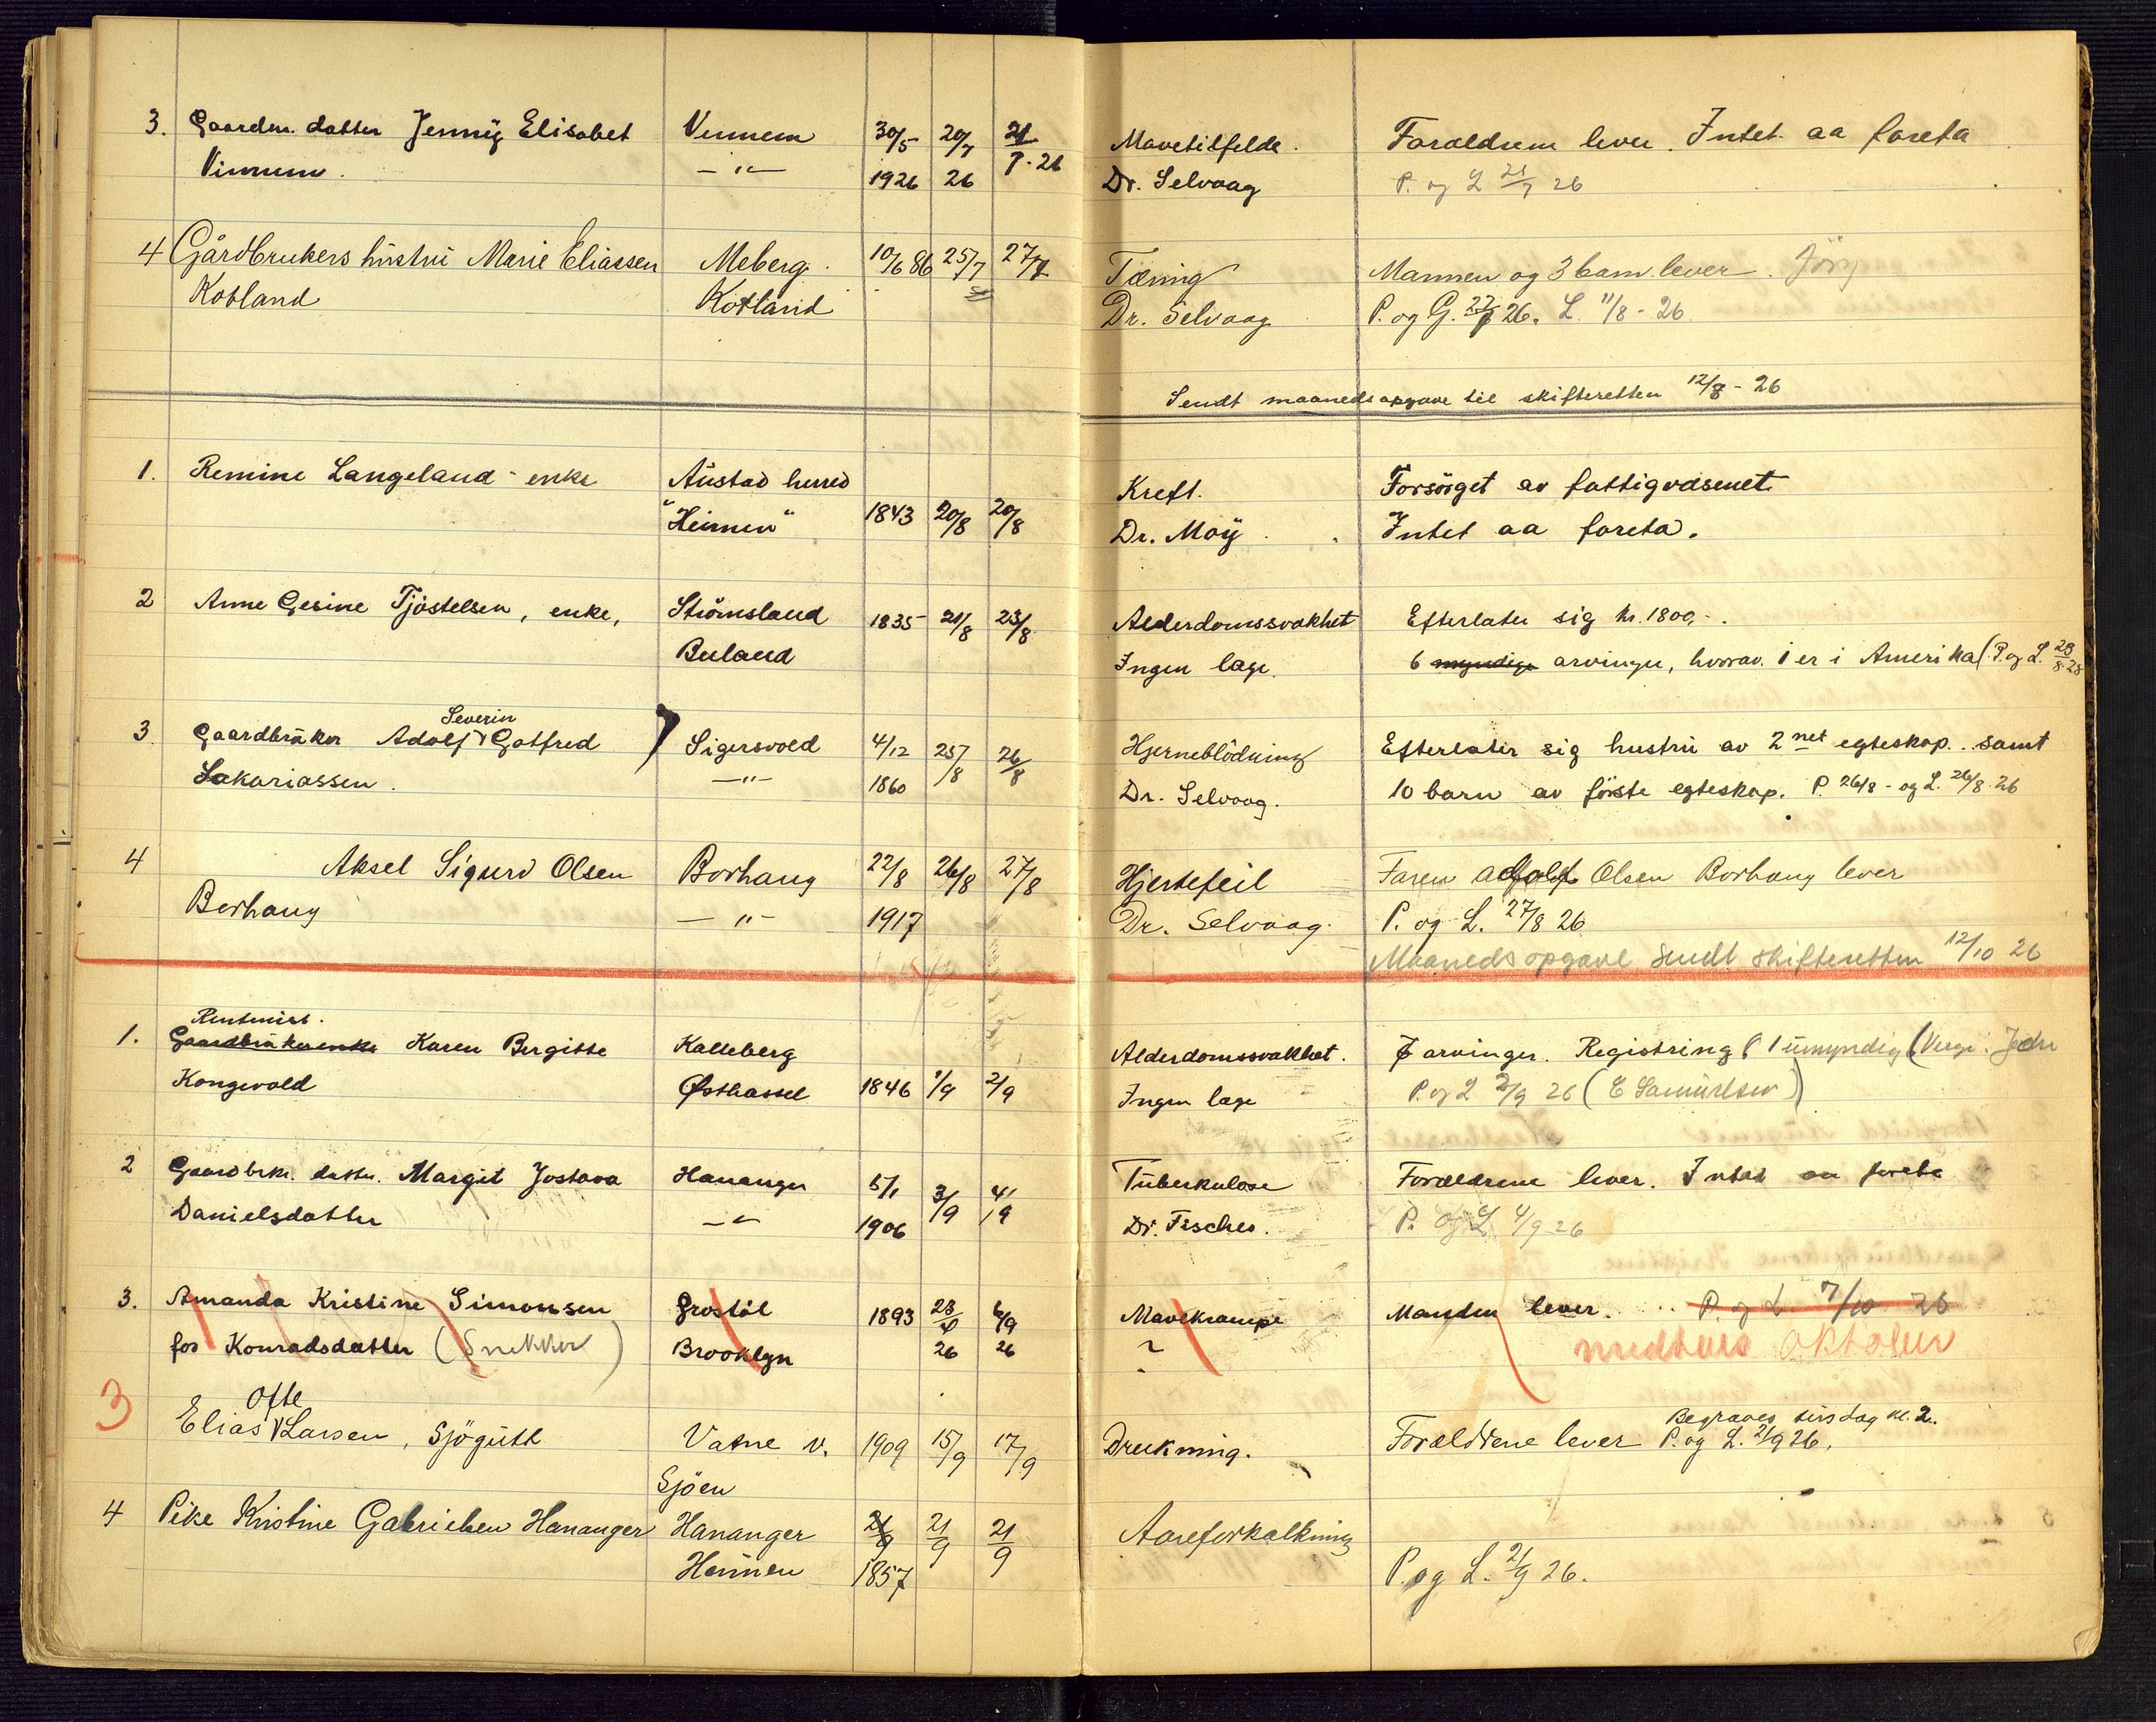 3. Gaardm. datter Jenny Elisabet Vennem 30/5 20/7 21/7-26 Mavetilfelde. Foraeldrene lever. Intet aa foreta
Vinnem. —"— 1926 26 Dr. Selvaag P. og L 21/7 26
4 Gårdbrukers hustru Marie Eliassen Meberg 10/6 86 25/7 27/7 Tæring Mannen og 3 barn lever.
Kotland Kotland Dr. Selvaag P. og G. 27/7 26. L. 11/8 - 26
Sendt maanedsopgave til skifteretten 12/8 - 26
1. Remine Langeland - enke Austad herred Kreft. Forsörget av fattigvæsenet.
"Heimen" 1843 20/8 20/8 Dr. Moy Intet aa foreta.
2 Anne Gesine Tjöstelsen, enke, Strömsland 1835 21/8 23/8 Alderdomssvakhet Efterlater sig kr. 1800,-.
Buland Ingen læge. 6 myndige arvinger, hvorav 1 er i Amerika (P. og L. 28/8-26
Severin
3 Gaardbruker Adolf Gotfred Sigersvold 4/12 25/8 26/8 Hjerneblödning Efterlater sig hustru av 2net egteskap.. samt
Sakariassen. —"— 1860 Dr. Selvaag. 10 barn av förste egteskap. P. 26/8 - og L. 26/8-26
4 Aksel Sigurd Olsen Borhaug 22/8 26/8 27/8 Hjertefeil Faren Adolf Olsen Borhaug lever
Borhaug —"— 1917 Dr. Selvaag. P. og L. 27/8 26
Maanedsopgave sendt skifteretten 12/10 26
Rentenist.
1. Gaardbrukerenke Karen Bergitte Kalleberg Alderdomssvakhet. 7 arvinger. Registring 1 umyndig (Verge:
Kongevold Østhassel 1846 1/9 2/9 Ingen læge P. og L 2/9 26 (E Samuelsen)
2 Gaardbrk. datter. Margit Jostava Hananger 5/1 3/9 4/9 Tuberkulose Foraeldrene lever. Intet aa foreta
Danielsdatter —"— 1906 Dr. Fischer. P. og L 4/9-26
3. Amanda Kristine Simonsen Grostöl 1893 28/8 6/9 Mavekrampe Manden lever. P. og L. 7/10 26
for Konradsdatter (Snekker) Brooklyn 26 26 ? medtaes oktober
Ofte
3 Elias Larsen, Sjögutt Vatne v. 1909 15/9 17/9 Drukning. Foreldrene lever P. og L. 21/9 26. Begraves tirsdag kl. 2.
Sjöen
4 Pike Kristine Gabrielsen Hananger Hananger 21/9 21/9 21/9 Aareforkalkning
Heimen 1857 P. og L. 21/9 26.